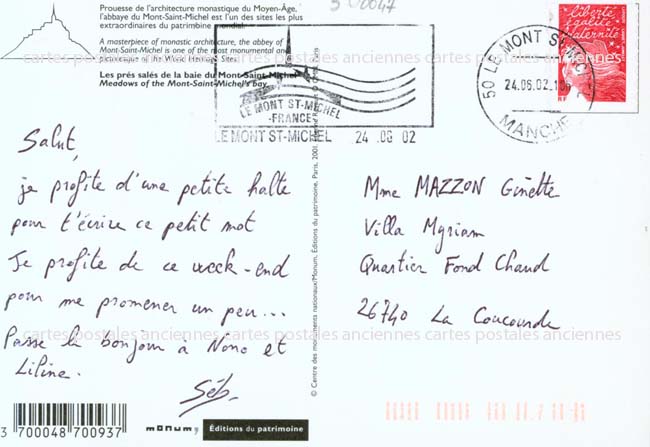 Prouesse de l'architecture monastique du Moyen-Âge,
l'abbaye du Mont-Saint-Michel est l'un des sites les plus
extraordinaires du patrimoine mondial.
A masterpiece of monastic architecture, the abbey of
Mont-Saint-Michel is one of the most monumental and
picturesque of the World Heritage Sites.
Les prés salés de la baie du Mont-Saint-Michel
Meadows of the Mont-Saint-Michel's bay
LE MONT ST-MICHEL
-FRANCE-
LE MONT ST-MICHEL 24 .06 02
50 LE MONT ST-MICHEL
24.06.02
MANCHE
liberté
égalité
fraternité
cartes postales anciennes cartes postales anciennes cartes postales anciennes
Salut,
je profite d'une petite halte
pour t'écrire ce petit mot
Je profite de ce week-end
pour me promener un peu...
Passe le bonjour à Nono et
Liline.
Séb.
Mme MAZZON Ginette
Villa Myriam
Quartier Fond Chaud
26740 La Coucourde
cartes postales anciennes cartes postales anciennes cartes postales anciennes
© Centre des monuments nationaux/Monum, Éditions du patrimoine, Paris, 2001.
3 700048 700937
monum, Éditions du patrimoine